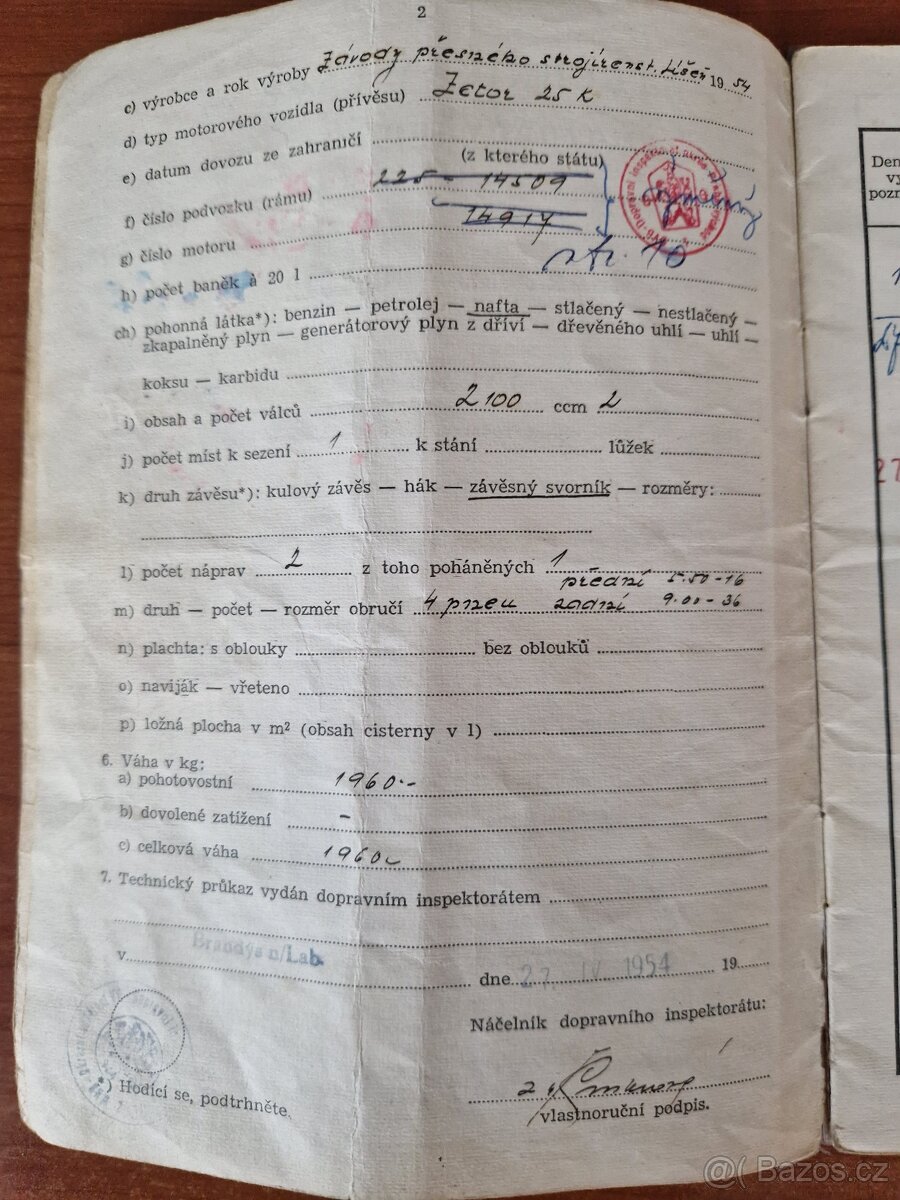 2
c) výrobce a rok výroby Závody přesného strojírenst. Líšeň 1954
d) typ motorového vozidla (přívěsu) Zetor 25 K
e) datum dovozu ze zahraničí
(z kterého státu)
f) číslo podvozku (rámu) 225 - 14509
g) číslo motoru 14917
str. 10
h) počet baněk à 20 l
ch) pohonná látka*): benzin — petrolej — nafta — stlačený — nestlačený —
zkapalněný plyn — generátorový plyn z dříví — dřevěného uhlí — uhlí —
koksu — karbidu
i) obsah a počet válců 2100 ccm 2
j) počet míst k sezení 1 k stání lůžek
k) druh závěsu*): kulový závěs — hák — závěsný svorník — rozměry:
l) počet náprav 2 z toho poháněných 1
přední 5.50-16
m) druh — počet — rozměr obručí 4 pneu zadní 9.00-36
n) plachta: s oblouky bez oblouků
o) naviják — vřeteno
p) ložná plocha v m² (obsah cisterny v l)
6. Váha v kg:
a) pohotovostní 1960.-
b) dovolené zatížení -
c) celková váha 1960
7. Technický průkaz vydán dopravním inspektorátem
v Brandýs n/Lab. dne 27. IV. 1954 19
Náčelník dopravního inspektorátu:
*) Hodící se, podtrhněte.
vlastnoruční podpis.
Den
vy
pozn
27
@ Bazos.cz